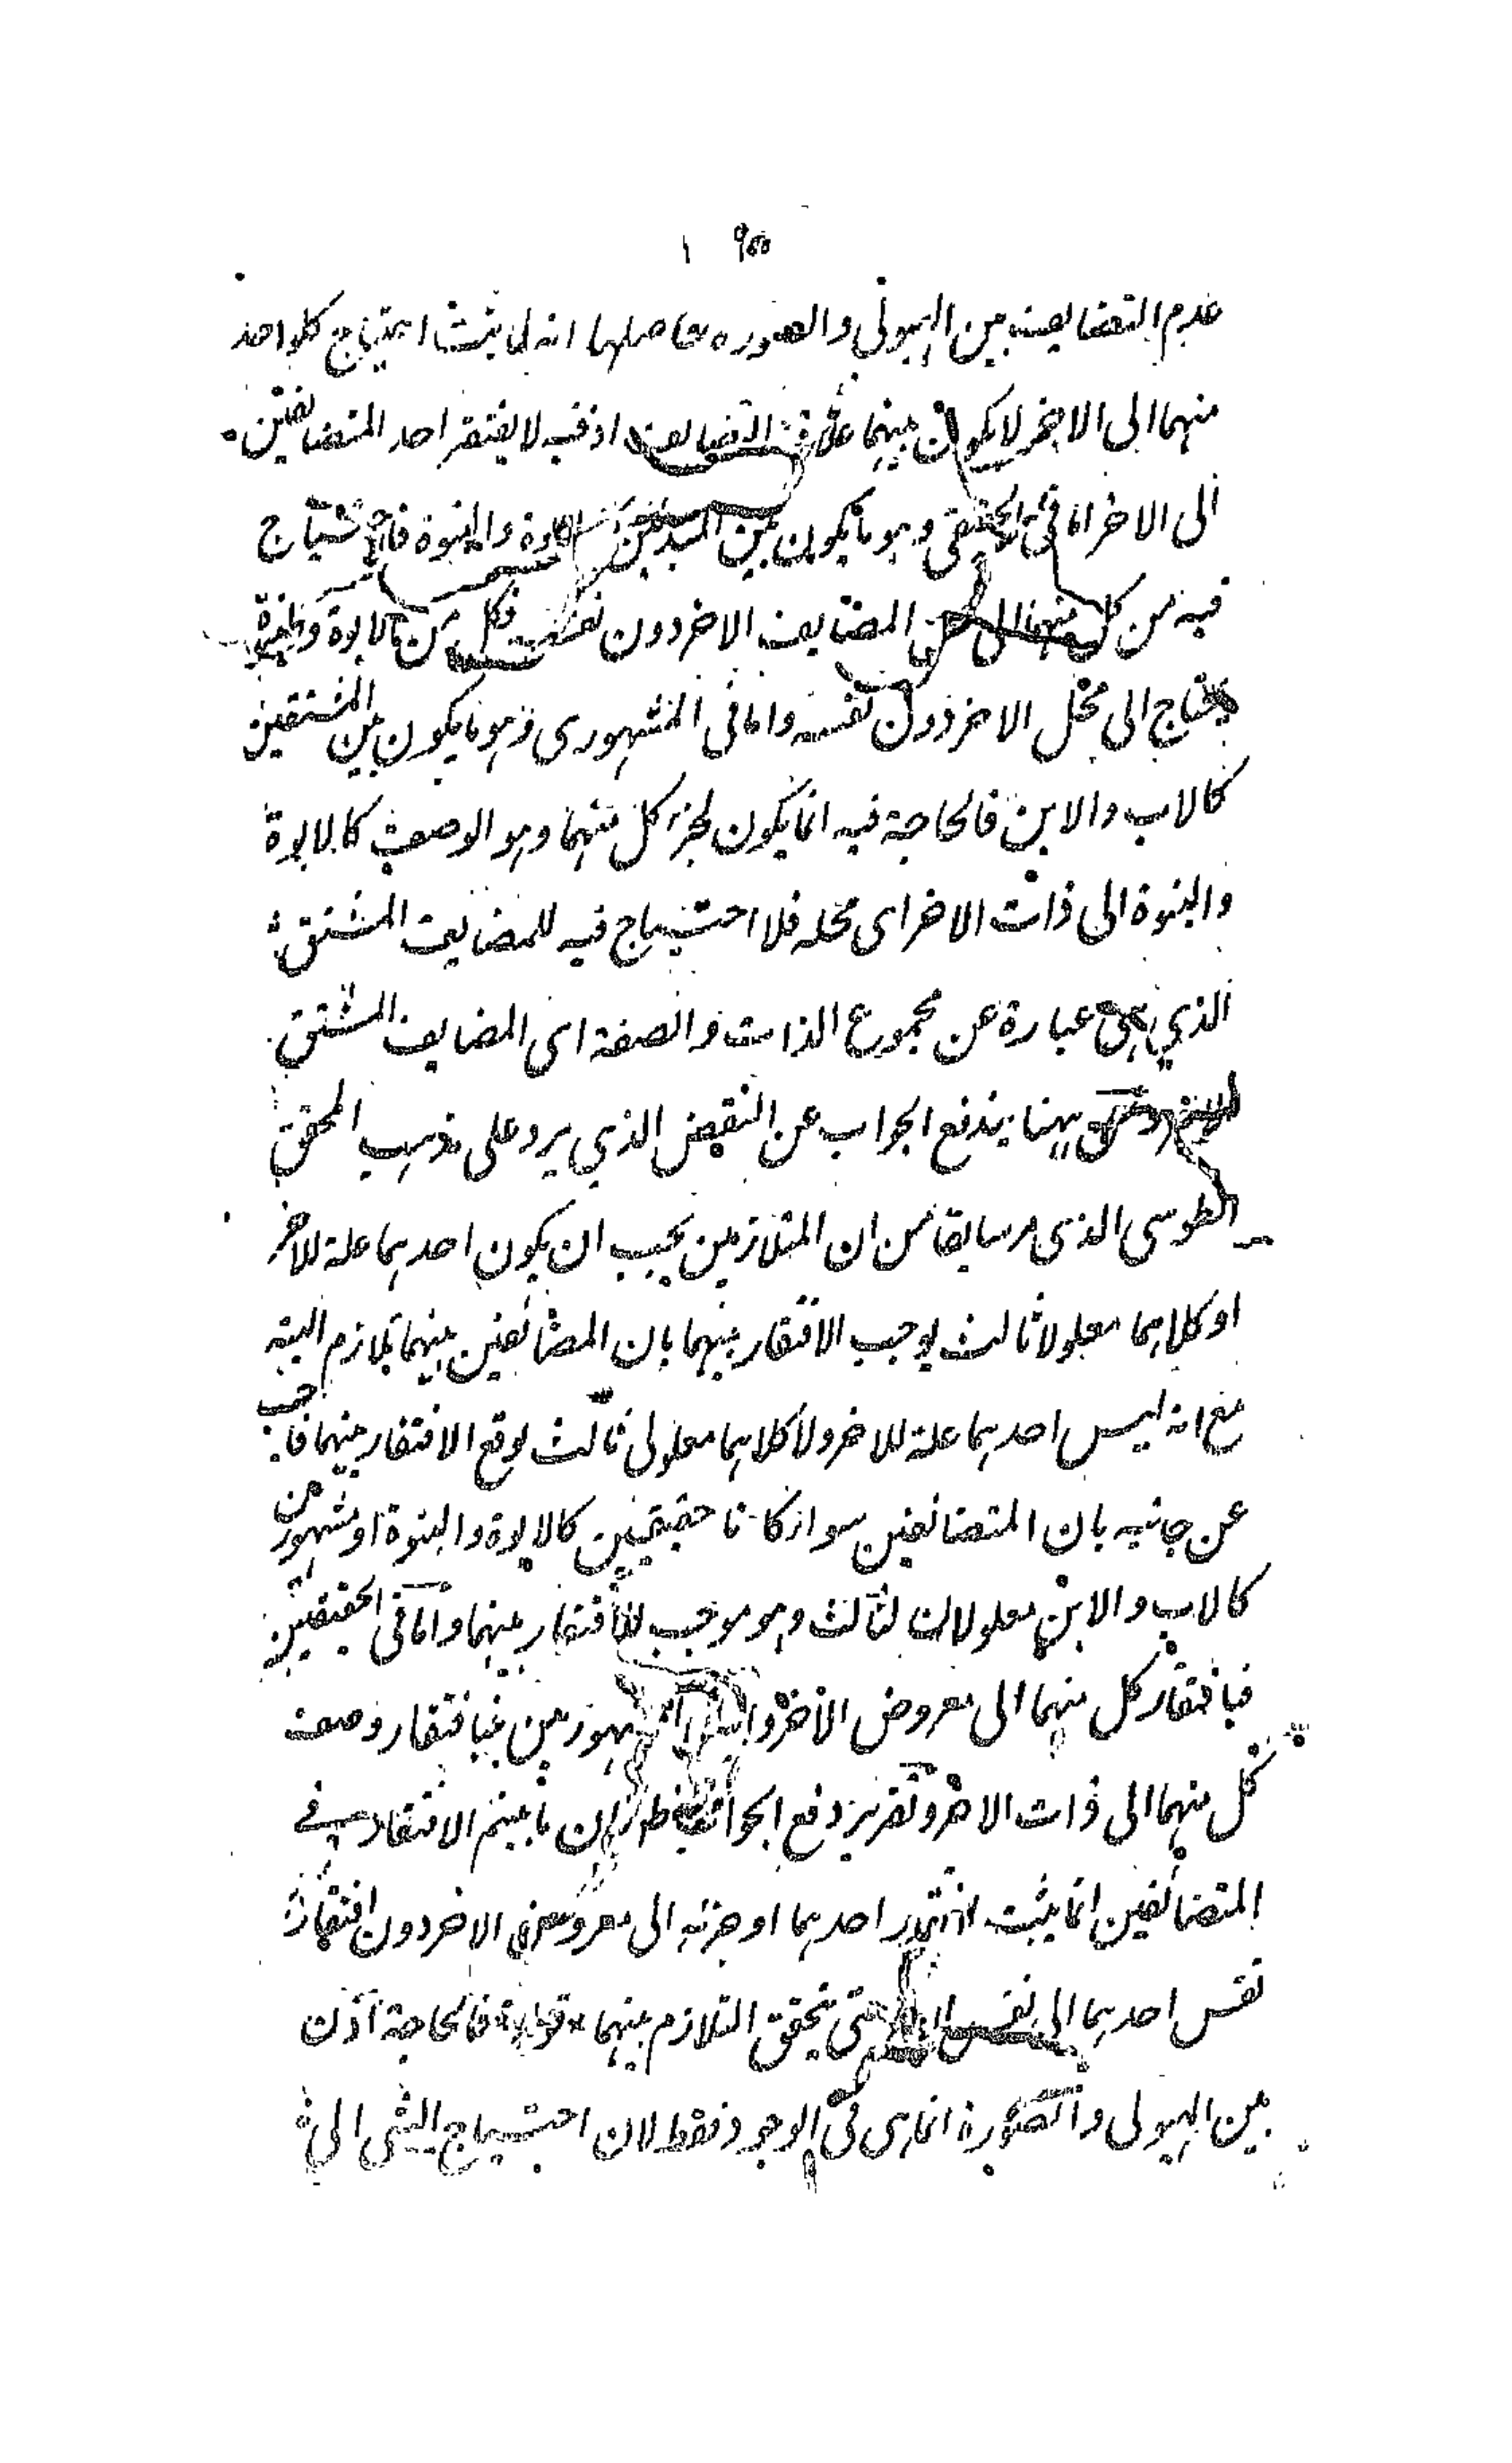 عدم التضايف بين الهيولى والصوره حاصلها انه لما يثبت احتياج كلواحد
منهما الى الاخر لا يكون بينهما علاقة التضايف اذ فيه لا يفتقر احد المتضايفين
الى الاخر اما فى الحقيقى وهو ما يكون بين المبدئين كالابوة والبنوة فالاحتياج
فيه من كل منهما الى محل المضايف الاخر دون نفسه فكل من الابوة والبنوة
يحتاج الى محل الاخر دون نفسه واما فى المشهورى وهو ما يكون بين المشتقين
كالاب والابن فالحاجة فيه انما يكون لجزء كل منهما وهو الوصف كالابوة
والبنوة الى ذات الاخر اى محله فلا احتياج فيه للمضايف المشتق
الذي هو عبارة عن مجموع الذات والصفة اى المضايف المشتق
الاخر ومن ههنا يندفع الجواب عن النقض الذي يرد على مذهب المحقق
الطوسى الذى مر سابقا من ان المتلازمين يجب ان يكون احدهما علة للاخر
او كلاهما معلولا ثالث يوجب الافتقار بينهما بان المضائفين بينهما تلازم البته
مع انه ليس احدهما علة للاخر ولا كلاهما معلولى ثالث لوقع الافتقار بينهما فاجيب
عن جانبه بان المتضائفين سواء كانا حقيقيين كالابوة والبنوة او مشهورين
كالاب والابن معلولان لثالث وهو موجب للافتقار بينهما واما فى الحقيقيين
فبافتقار كل منهما الى معروض الاخر واما فى المشهورين فبافتقار وصف
كل منهما الى ذات الاخر وتقرير دفع الجواب ظاهر ان ما بينتم الافتقار في
المتضائفين انما يثبت افتقار احدهما او جزئه الى معروض الاخر دون افتقار
نفس احدهما الى نفس الاخر حتى يتحقق التلازم بينهما قوله فالحاجة اذن
بين الهيولى والصورة انما هى فى الوجود فقط لان احتياج الشى الى